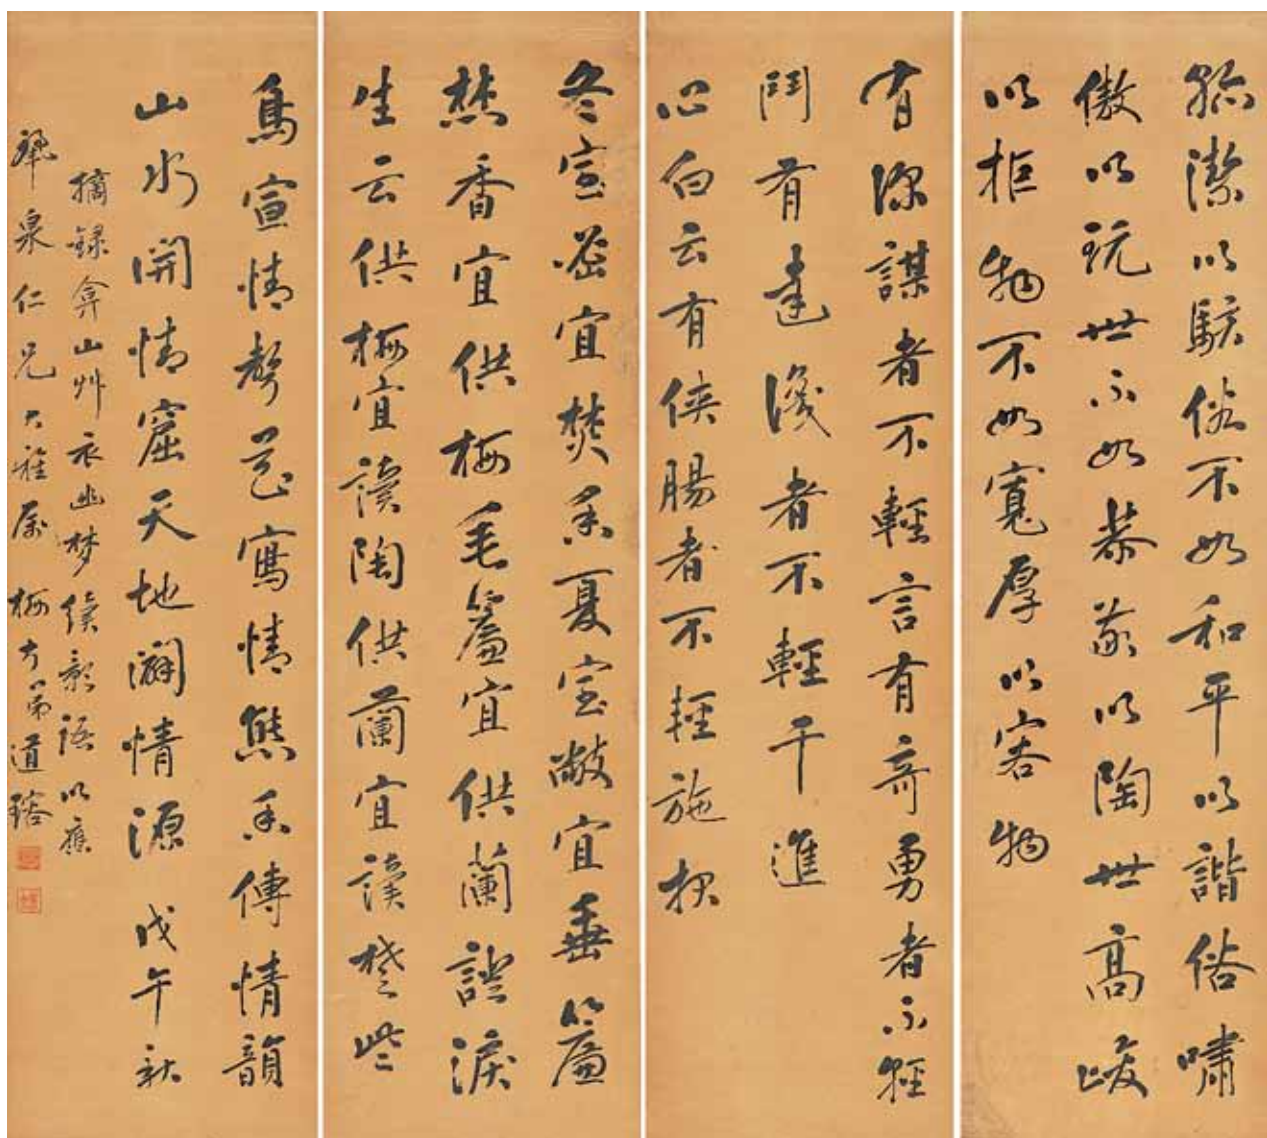 孤潔以駭俗不如和平以諧俗嘯
傲以玩世不如恭敬以陶世高峻
以拒物不如寬厚以容物
有深謀者不輕言有奇勇者不輕
鬥有者不輕干進
心白云有俠腸者不輕施報
冬室密宜焚香夏室敞宜垂簾
焚香宜供梅垂簾宜供蘭證淚
生云供梅宜讀陶供蘭宜讀楚些
鳥宣情聲花寫情態香傳情韻
山水開情窟天地闢情源 戊午秋
摘録弇山艸衣幽梦續影語以應
泉仁兄大雅屬 梅方小弟道鎔